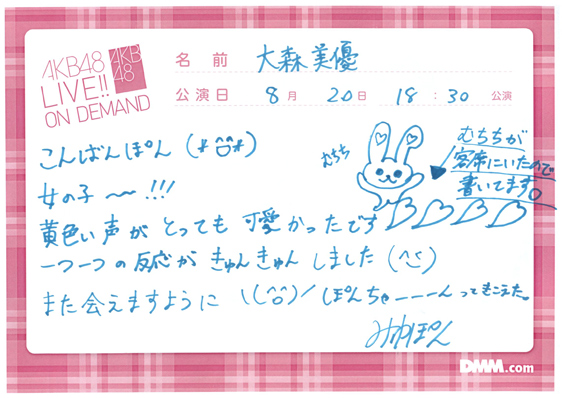 AKB48
LIVE!!
ON DEMAND
AKB
48
名前 大森美優
公演日 8月 20日 18:30 公演
こんばんぽん (*^▽^*)
女の子〜!!!
黄色い声がとっても可愛かったです
一つ一つの反応がきゅんきゅんしました(^^)
また会えますように \(^▽^)/ ぽんちゃーーーんってもこえた。
むちち
むちちが
客席にいたので
書いてます。
みゆぽん
DMM.com